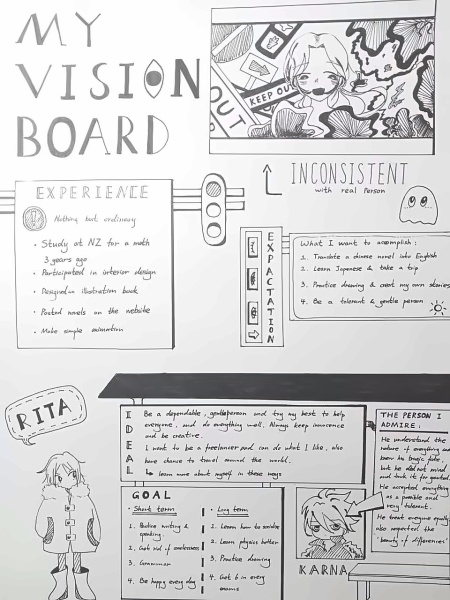 MY
VISION
BOARD
OUT
KEEP OUT
INCONSISTENT
with real Person
EXPERIENCE
Nothing but ordinary
• Study at NZ for a month
3 years ago
• Participated in interior design
• Designed an illustration book
• Posted novels on the website
• Make simple animation
EXPACTATION
What I want to accomplish:
1. Translate a chinese novel into English
2. Learn Japanese & take a trip
3. Practice drawing & creat my own stories
4. Be a tolerant & gentle person
RITA
IDEAL
Be a dependable, gentleperson and try my best to help
everyone, and do everything well. Always keep innocence
and be creative.
I want to be a freelancer and can do what I like, also
have chance to travel around the world.
↳ learn more about myself in these ways
GOAL
• Short term
1. Practice writing &
speaking
2. Get rid of carelessness
3. Grammar
4. Be happy every day
• Long term
1. Learn how to socialize
2. Learn physics better
3. Practice drawing
4. Get 6 in every
exams
THE PERSON I
ADMIRE:
He understood the
nature of everything and
knew his tragic fate
but he did not mind
and took it for granted.
He accepted everything
as a possible and
very tolerant.
He treat everyone equally
also respected the
"beauty of differences"
KARNA